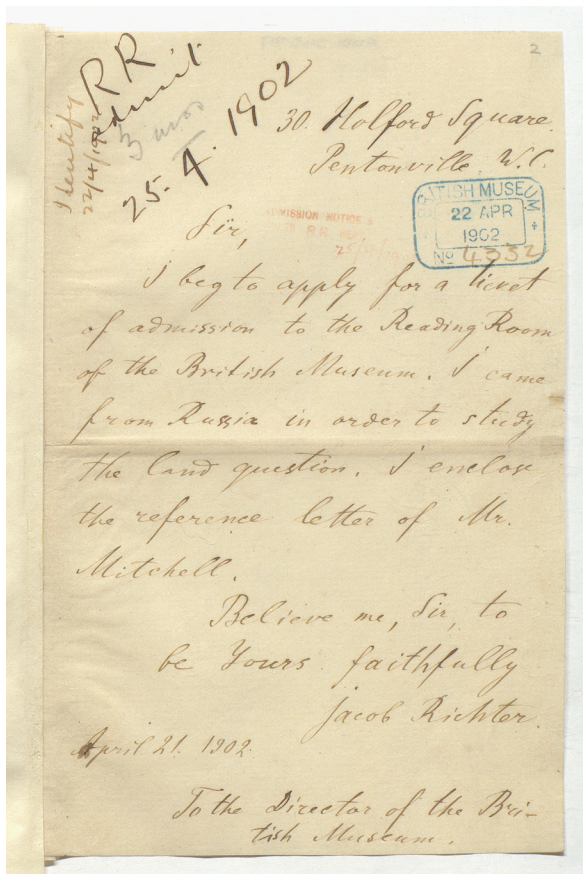 2
RR
admit
Identify
22/4/1902
3 mos
25. 4. 1902
30. Holford Square.
Pentonville. W.C.
BRITISH MUSEUM
22 APR
1902
No 4332
ADMISSION NOTICE
Sir,
I beg to apply for a ticket
of admission to the Reading Room
of the British Museum. I came
from Russia in order to study
the land question. I enclose
the reference letter of Mr.
Mitchell.
Believe me, Sir, to
be Yours faithfully
Jacob Richter.
April 21. 1902.
To the Director of the Bri-
tish Museum.